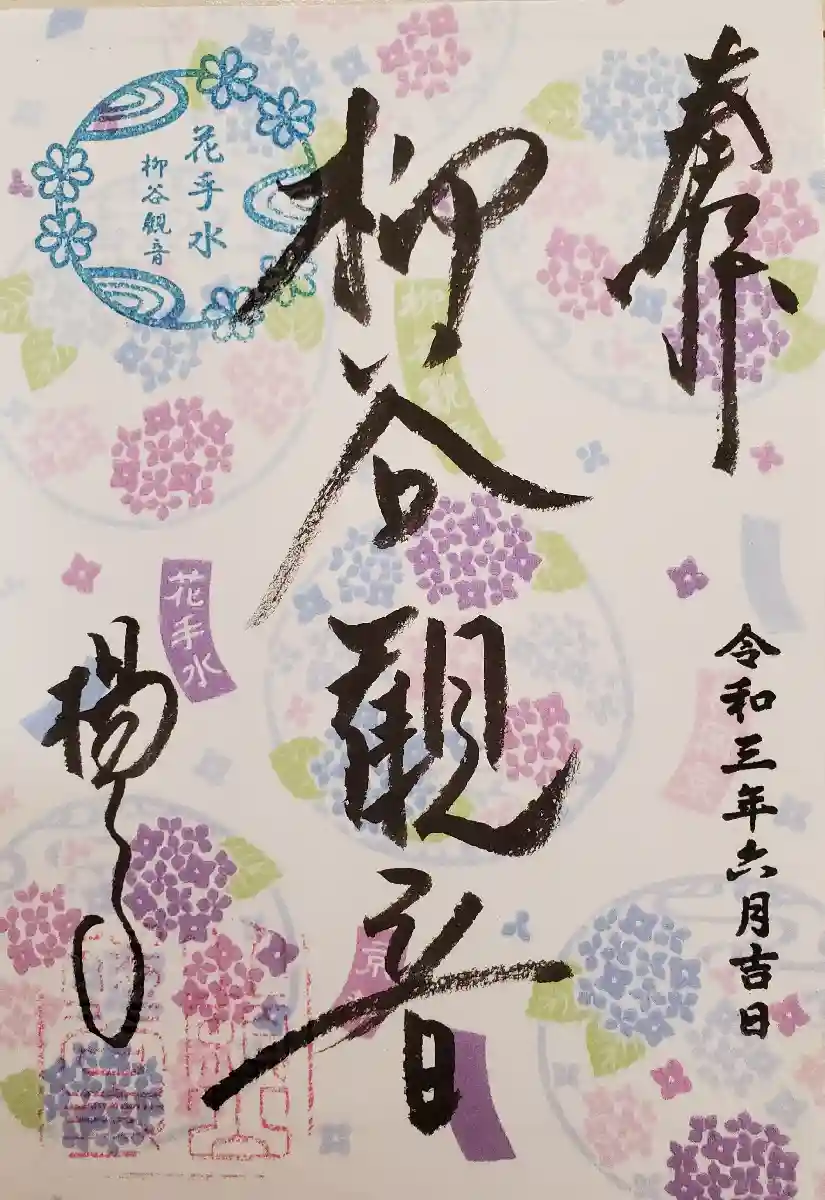 奉拝
令和三年六月吉日
柳谷観音
花手水
柳谷観音
花手水